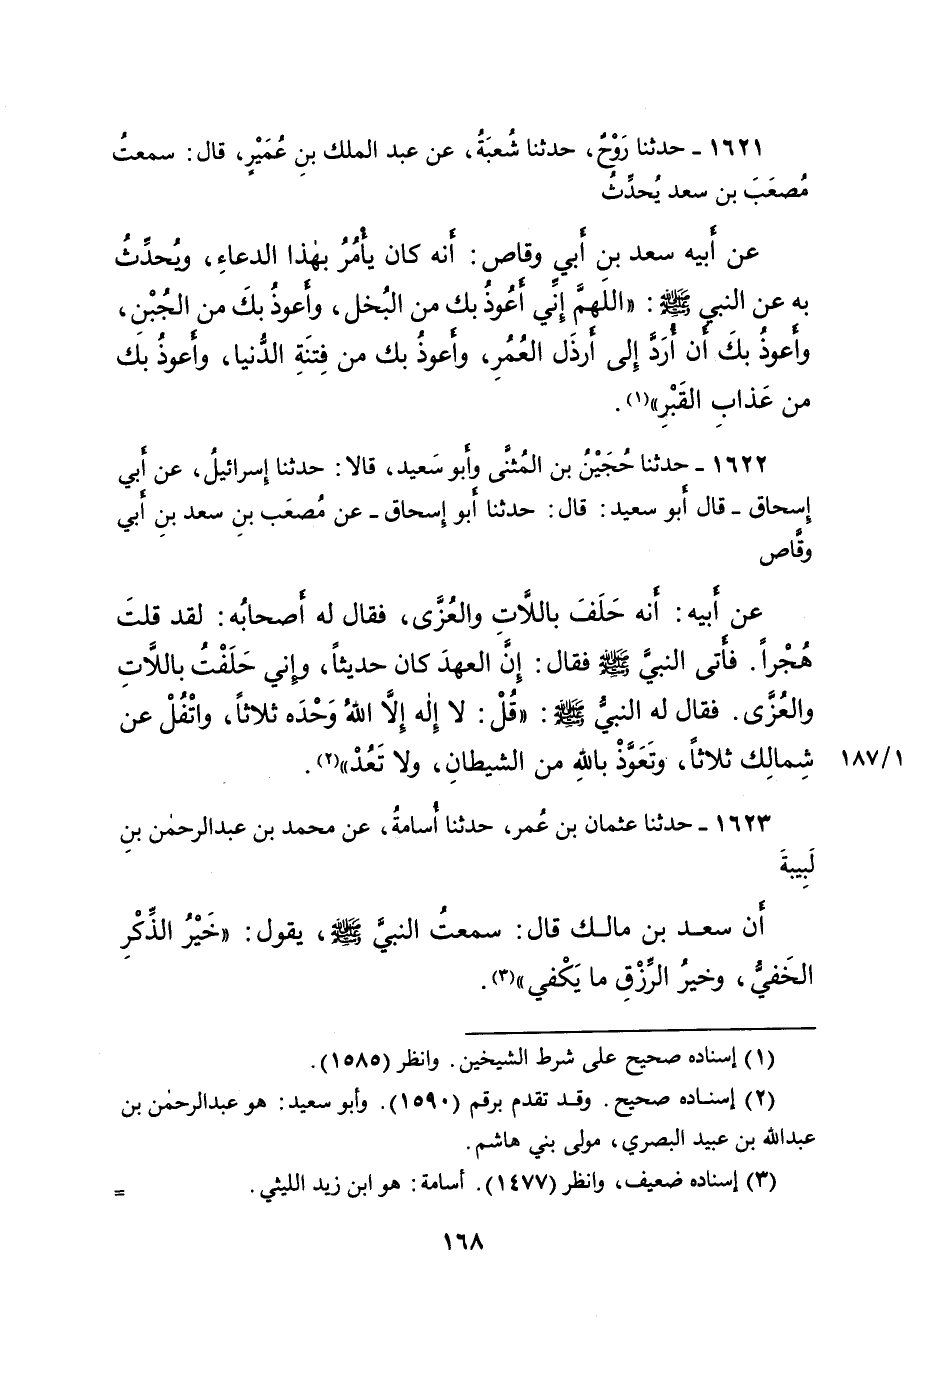 ١٦٢١ ـ حدثنا رَوْحٌ، حدثنا شُعبَةُ، عن عبد الملك بنِ عُمَيْرٍ، قال: سمعتُ
مُصعَبَ بن سعد يُحدِّثُ
عن أَبيه سعد بنِ أَبي وقاص: أَنه كان يأْمُرُ بهٰذا الدعاءِ، ويُحدِّثُ
به عن النبي ﷺ: «اللهمَّ إِنِّي أَعُوذُ بك من البُخل، وأَعوذُ بكَ من الجُبْن،
وأَعوذُ بكَ أَن أُرَدَّ إِلى أَرذَل العُمُرِ، وأَعوذُ بك من فِتنَةِ الدُّنيا، وأَعوذُ بك
من عَذابِ القَبْرِ»(١).
١٦٢٢ ـ حدثنا حُجَيْنُ بن المُثنَّى وأَبو سَعيد، قالا: حدثنا إِسرائيلُ، عن أَبي
إِسحاق ـ قال أَبو سعيد: قال: حدثنا أَبو إِسحاق ـ عن مُصعَب بنِ سعد بنِ أَبي
وقَّاص
عن أَبيه: أَنه حَلَفَ باللَّاتِ والعُزَّى، فقال له أَصحابُه: لقد قلتَ
هُجْراً. فأَتى النبيَّ ﷺ فقال: إِنَّ العهدَ كان حديثاً، وإِني حَلَفْتُ باللَّاتِ
والعُزَّى. فقال له النبيُّ ﷺ: «قُلْ: لا إِلٰه إِلَّا اللهُ وَحْدَه ثلاثاً، واتْفُلْ عن
شِمالِك ثلاثاً، وتَعَوَّذْ باللهِ من الشيطانِ، ولا تَعُدْ»(٢). ١٨٧/١
١٦٢٣ ـ حدثنا عثمان بن عُمر، حدثنا أُسامةُ، عن محمد بن عبدالرحمٰن بنِ
لَبِيبةَ
أَن سعد بن مالك قال: سمعتُ النبيَّ ﷺ، يقول: «خَيْرُ الذِّكْرِ
الخَفيُّ، وخيرُ الرِّزْقِ ما يَكْفي»(٣).
(١) إسناده صحيح على شرط الشيخين. وانظر (١٥٨٥).
(٢) إسناده صحيح. وقد تقدم برقم (١٥٩٠). وأبو سعيد: هو عبدالرحمٰن بن
عبدالله بن عبيد البصري، مولى بني هاشم.
(٣) إسناده ضعيف، وانظر (١٤٧٧). أسامة: هو ابن زيد الليثي. =
١٦٨